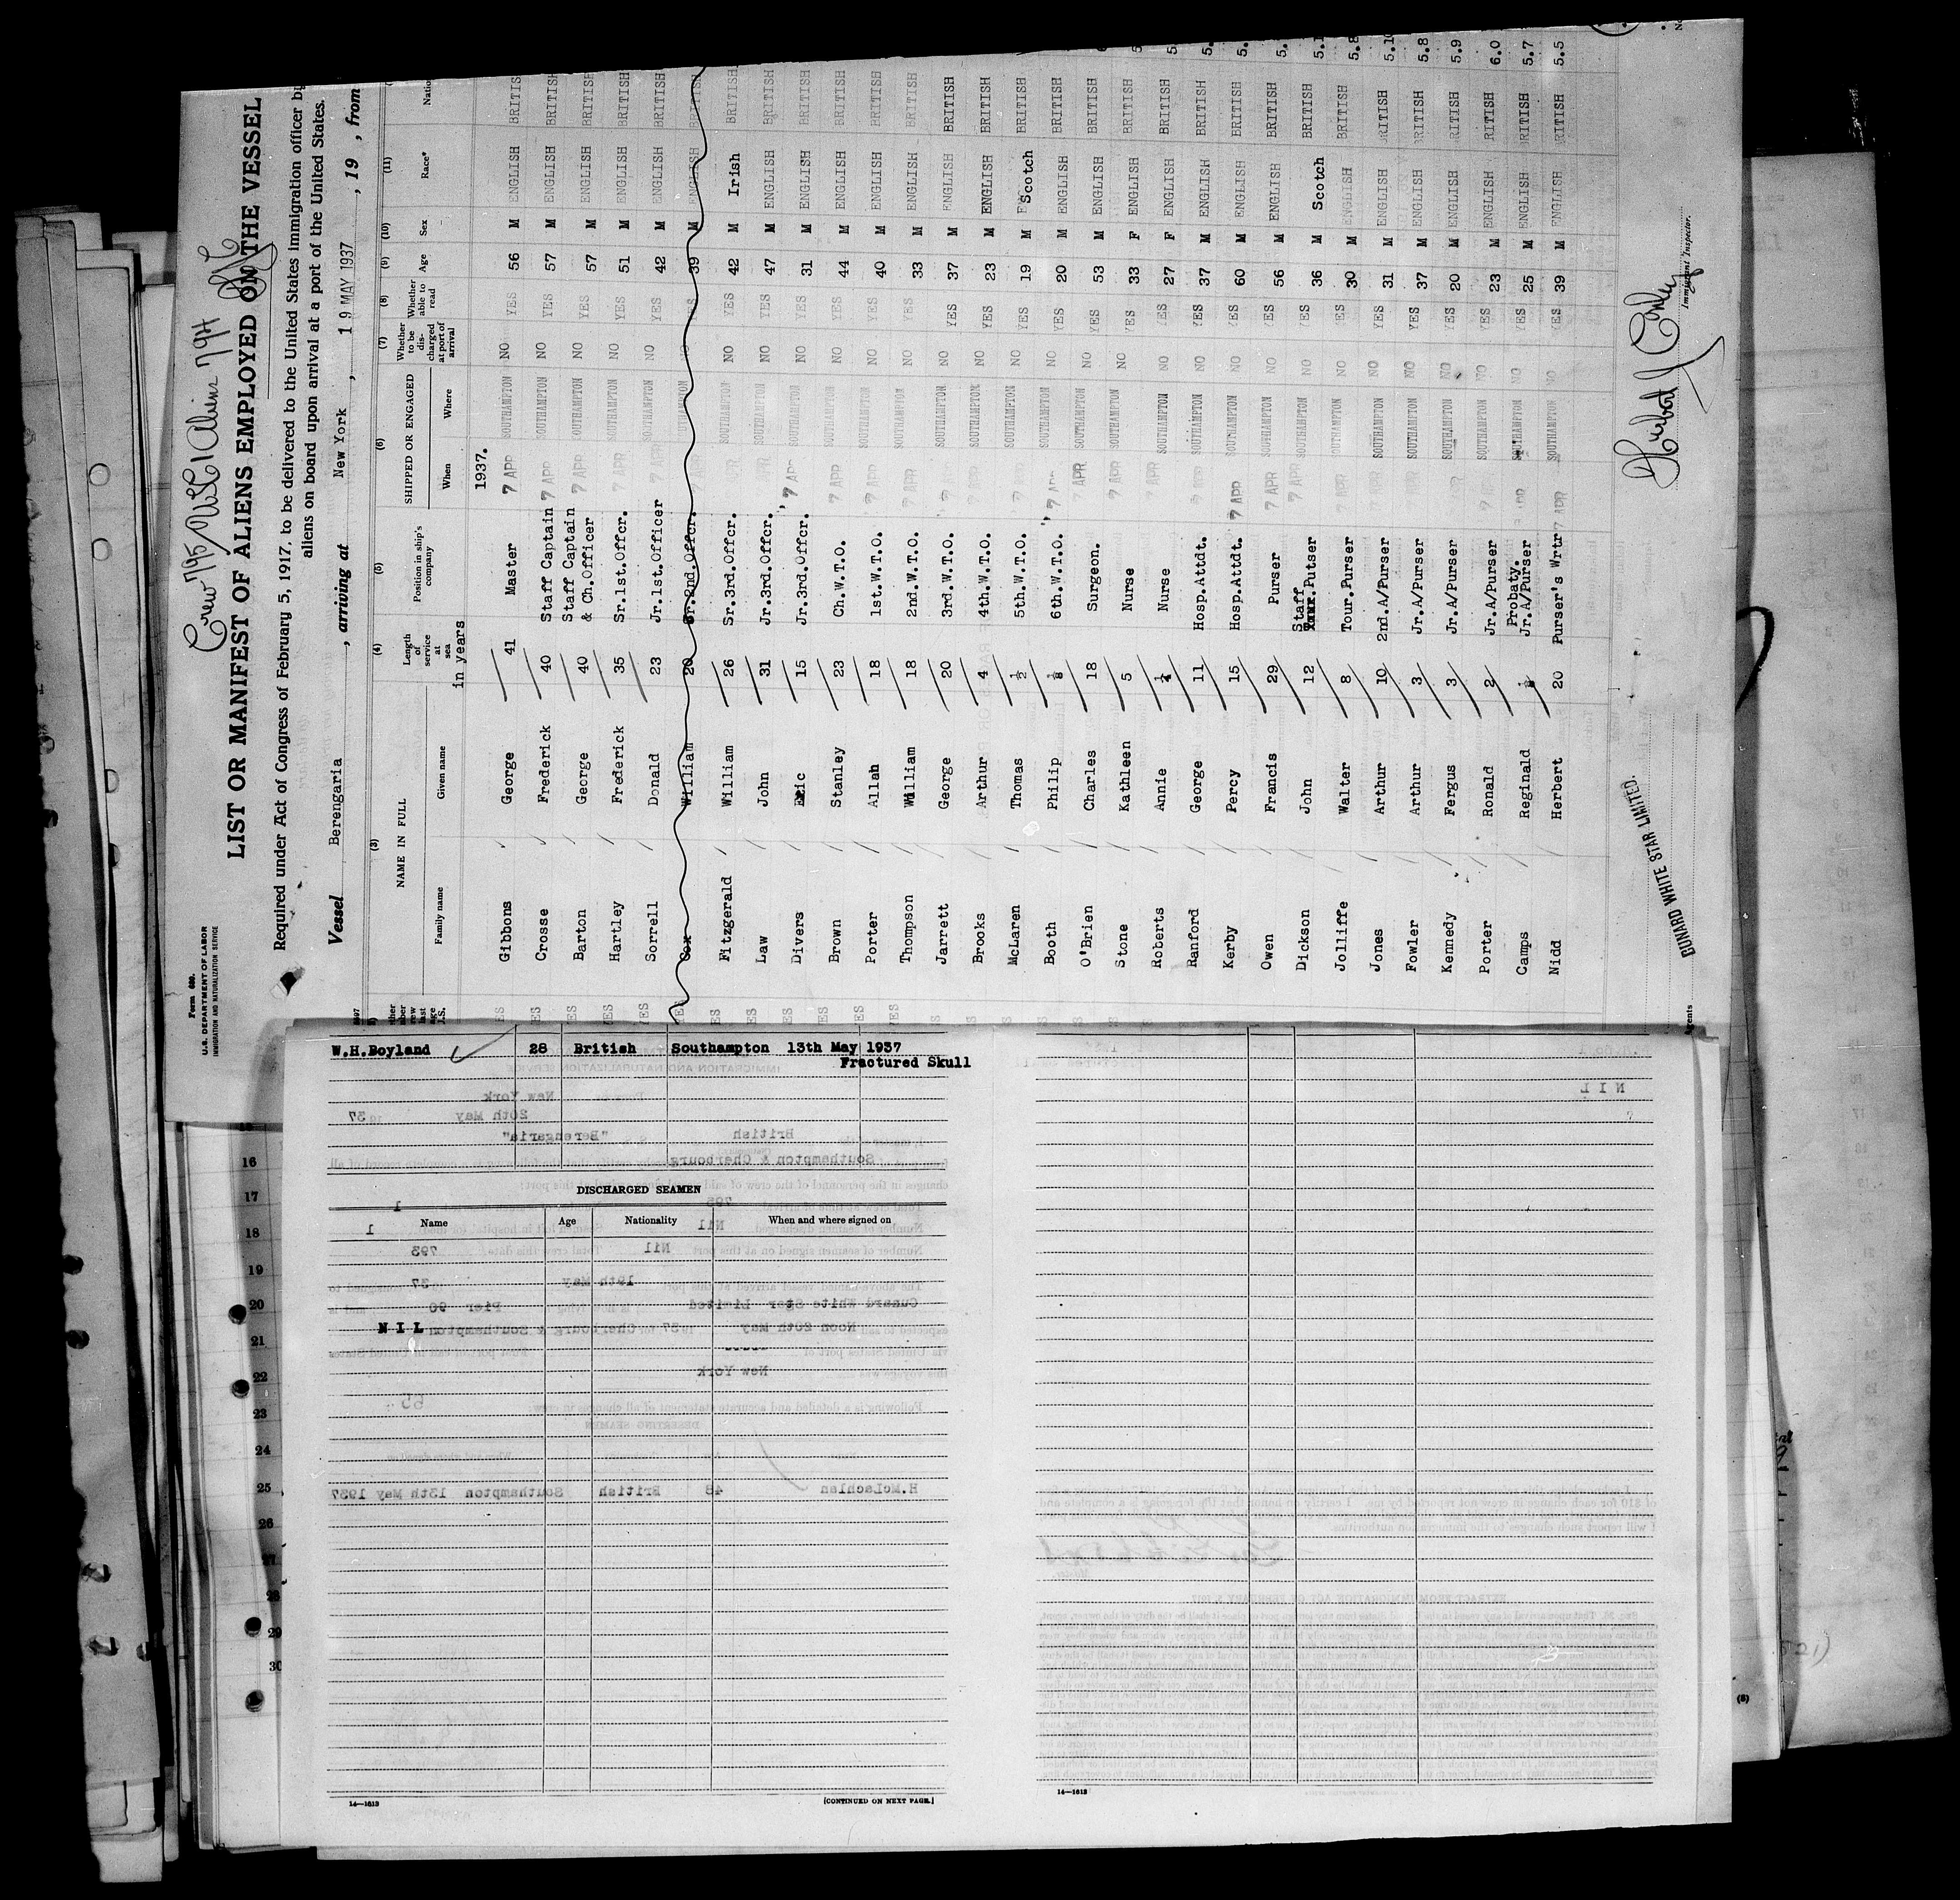 Crew 795/USC 1 Aliens 794
Form 689.
U.S. DEPARTMENT OF LABOR
IMMIGRATION AND NATURALIZATION SERVICE
LIST OR MANIFEST OF ALIENS EMPLOYED ON THE VESSEL
Required under Act of Congress of February 5, 1917, to be delivered to the United States immigration officer by
aliens on board upon arrival at a port of the United States.
Vessel Berengaria , arriving at New York , 19 MAY 1937 , 19 , from
(3) NAME IN FULL Family name Given name (4) Length of service at sea in years (5) Position in ship's company (6) SHIPPED OR ENGAGED When Where (7) Whether to be discharged at port of arrival (8) Whether able to read (9) Age (10) Sex (11) Race*
1937.
YES Gibbons George 41 Master 7 APR SOUTHAMPTON NO YES 56 M ENGLISH BRITIS
YES Crosse Frederick 40 Staff Captain 7 APR SOUTHAMPTON NO YES 57 M ENGLISH BRITISH
YES Barton George 40 Staff Captain & Ch.Officer 7 APR SOUTHAMPTON NO YES 57 M ENGLISH BRITISH
YES Hartley Frederick 35 Sr.1st.Offcr. 7 APR SOUTHAMPTON NO YES 51 M ENGLISH BRITISH
YES Sorrell Donald 23 Jr.1st.Officer 7 APR SOUTHAMPTON NO YES 42 M ENGLISH BRITISH
YES Cox William 20 Sr.2nd.Offcr. SOUTHAMPTON NO YES 39 M ENGLISH BRITISH
YES Fitzgerald William 26 Sr.3rd.Offcr. 7 APR SOUTHAMPTON NO YES 42 M Irish BRITISH
YES Law John 31 Jr.3rd.Offcr. APR SOUTHAMPTON NO YES 47 M ENGLISH BRITISH
YES Divers Eric 15 Jr.3rd.Offcr. 7 APR SOUTHAMPTON NO YES 31 M ENGLISH BRITISH
YES Brown Stanley 23 Ch.W.T.O. 7 APR SOUTHAMPTON NO YES 44 M ENGLISH BRITISH
YES Porter Allan 18 1st.W.T.O. 7 APR SOUTHAMPTON NO YES 40 M ENGLISH BRITISH
YES Thompson William 18 2nd.W.T.O. 7 APR SOUTHAMPTON NO YES 33 M ENGLISH BRITISH
ES Jarrett George 20 3rd.W.T.O. 7 APR SOUTHAMPTON NO YES 37 M ENGLISH BRITISH
ES Brooks Arthur 4 4th.W.T.O. 7 APR SOUTHAMPTON NO YES 23 M ENGLISH BRITISH
ES McLaren Thomas ½ 5th.W.T.O. 7 APR SOUTHAMPTON NO YES 19 M Scotch BRITISH
ES Booth Philip 6th.W.T.O. 7 APR SOUTHAMPTON NO YES 20 M ENGLISH BRITISH
ES O'Brien Charles 18 Surgeon. 7 APR SOUTHAMPTON NO YES 53 M ENGLISH BRITISH
ES Stone Kathleen 5 Nurse 7 APR SOUTHAMPTON NO YES 33 F ENGLISH BRITISH 5
Roberts Annie Nurse 7 APR SOUTHAMPTON NO YES 27 F ENGLISH BRITISH 5.
Ranford George 11 Hosp.Attdt. 7 APR SOUTHAMPTON NO YES 37 M ENGLISH BRITISH 5.
Kerby Percy 15 Hosp.Attdt. 7 APR SOUTHAMPTON NO YES 60 M ENGLISH BRITISH 5.
Owen Francis 29 Purser 7 APR SOUTHAMPTON NO YES 56 M ENGLISH BRITISH 5.
Dickson John 12 Staff Putser 7 APR SOUTHAMPTON NO YES 36 M Scotch BRITISH 5.1
Jolliffe Walter 8 Tour.Purser 7 APR SOUTHAMPTON NO YES 30 M ENGLISH BRITISH 5.8
Jones Arthur 10 2nd.A/Purser 7 APR SOUTHAMPTON NO YES 31 M ENGLISH BRITISH 5.10
Fowler Arthur 3 Jr.A/Purser 7 APR SOUTHAMPTON NO YES 37 M ENGLISH BRITISH 5.8
Kennedy Fergus 3 Jr.A/Purser 7 APR SOUTHAMPTON NO YES 20 M ENGLISH BRITISH 5.9
Porter Ronald 2 Jr.A/Purser 7 APR SOUTHAMPTON NO YES 23 M ENGLISH BRITISH 6.0
Camps Reginald Probaty. Jr.A/Purser APR SOUTHAMPTON NO YES 25 M ENGLISH BRITISH 5.7
Nidd Herbert 20 Purser's Wrtr 7 APR SOUTHAMPTON NO YES 39 M ENGLISH BRITISH 5.5
CUNARD WHITE STAR LIMITED.
Agents
Immigrant Inspector.
W.H.Boyland 28 British Southampton 13th May 1937
Fractured Skull
DISCHARGED SEAMEN
Name Age Nationality When and where signed on
NIL
14—1613
[CONTINUED ON NEXT PAGE.]
14—1613
16
17
18
19
20
21
22
23
24
25
26
27
28
29
30
(8)